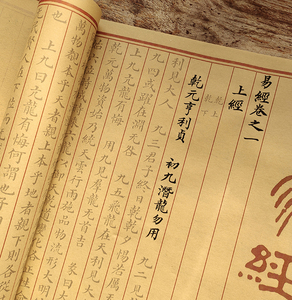 易經卷之一
上經
乾元亨利貞 初九潛龍勿用 九二見
利見大人 九三君子終日乾乾夕惕若厲
九四或躍在淵无咎 九五飛龍在天利見大
上九亢龍有悔 用九見群龍无首吉 彖曰
乾元萬物資始乃統天雲行雨施品物流形大明
萬物覩本乎天者親上本乎地者親下則各從
上九曰亢龍有悔何謂也子曰
也
經